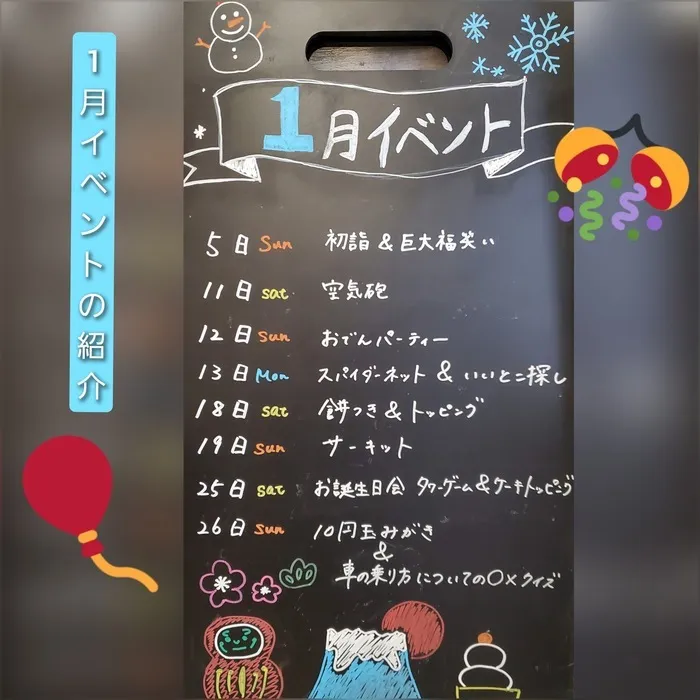 1月イベントの紹介
1月イベント
5日 Sun 初詣 & 巨大福笑い
11日 sat 空気砲
12日 Sun おでんパーティー
13日 Mon スパイダーネット & いいとこ探し
18日 sat 餅つき & トッピング
19日 Sun サーキット
25日 sat お誕生日会 タワーゲーム & ケーキトッピング
26日 Sun 10円玉みがき
&
車の乗り方についての〇×クイズ